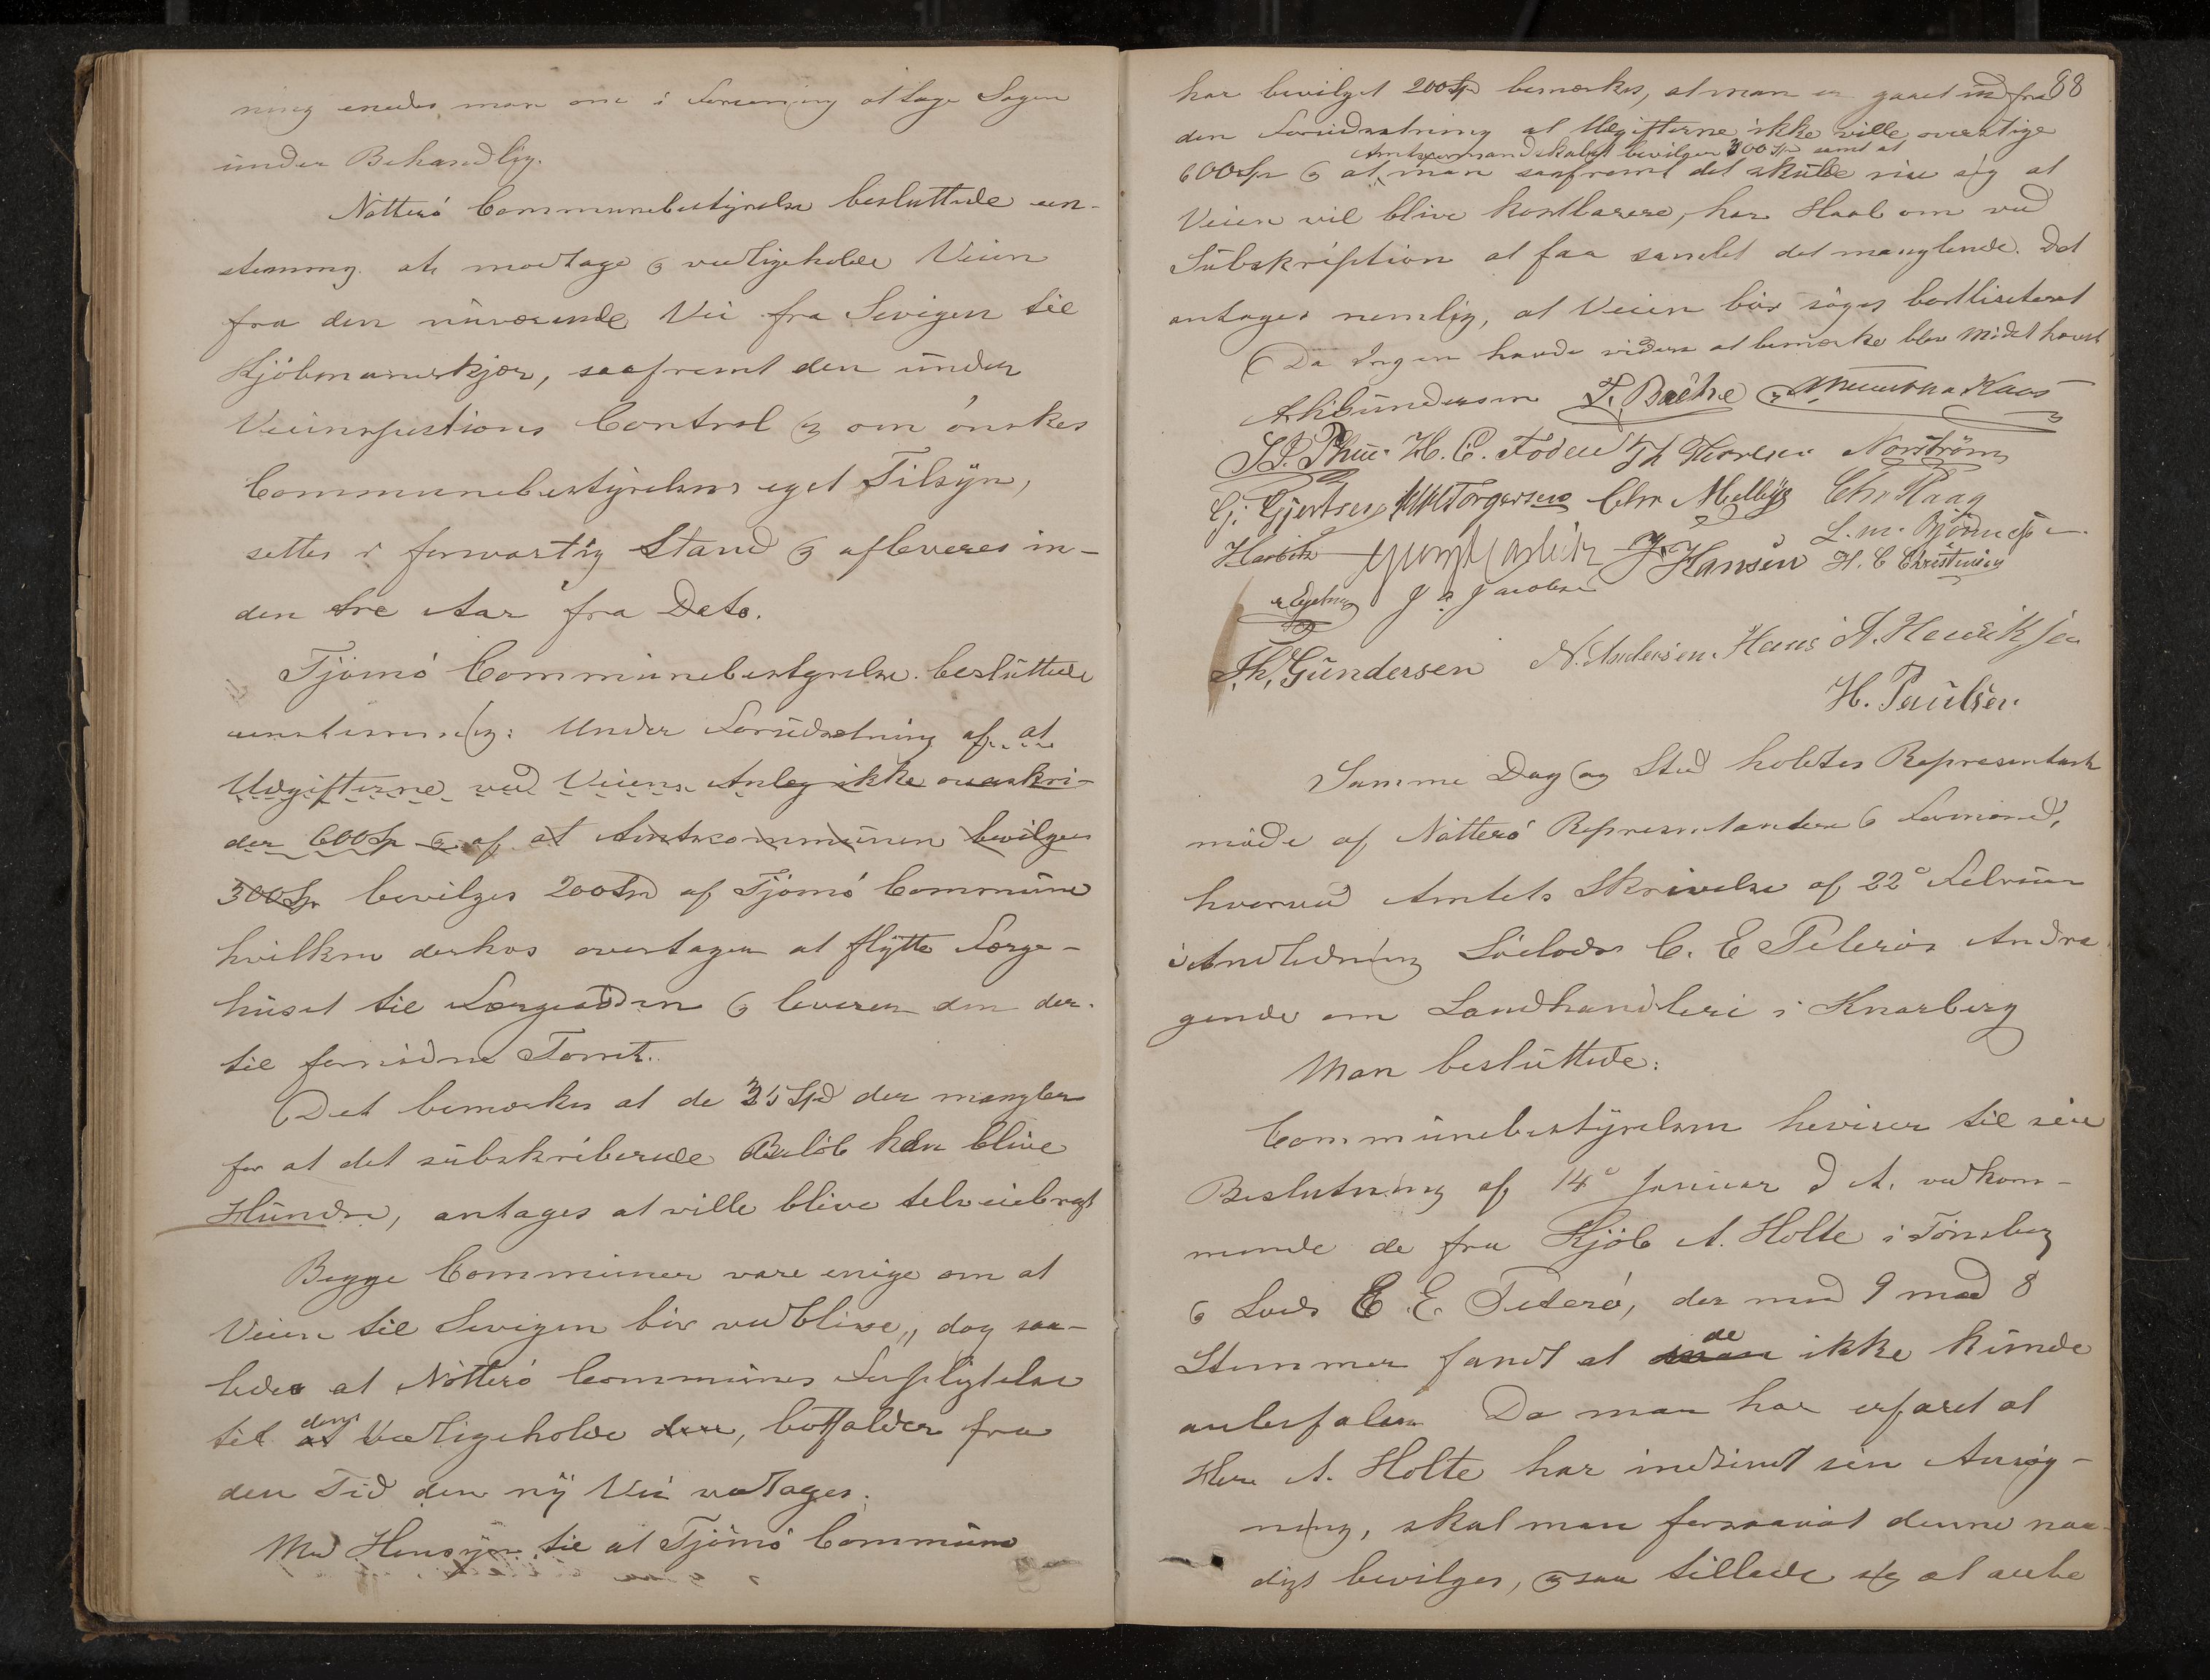 ning enedes man om i Forening at tage Sagen
under Behandlig.
Nötterö Communebestyrelse besluttede een-
stemmig at modtage og vedligeholde Veien
fra den nuværende Vei fra Sevigen til
Kjöbmanskjær, saafremt den under
Veiinspections Control og om önskes
Communebestyrelsens eget Tilsyn,
settes i forsvarlig Stand og afleveres in-
den tre Aar fra Dato.
Tjömö Communebestyrelse besluttede
eenstemmig: Under Forudsætning af at
Udgifterne ved Veiens Anleg ikke overskri-
der 600 Sp og af at Amtscommunen bevilges
300 Sp bevilges 200 Spd af Tjömö Commune
hvilken derhos overtager at flytte Færge-
huset til Færgeodden og leverer den der-
til fornödne Tomt.
Det bemærkes at de 35 Spd der mangler
for at det subskriberede Belöb kan blive
Hundre, antages at ville blive tilveiebragt
Begge Communer vare enige om at
Veien til Sevigen bör vedblive, dog saa-
ledes at Nötterö Communes Forpligtelse
til at dens Vedligeholde den, bortfalder fra
den Tid den ny Vei modtages.
Med Hensyn til at Tjömö Commune
88
har bevilget 200 Spd bemærkes, at man er gaaet ud fra
den Forudsætning at Udgifterne ikke ville overstige
Amtsformandskabet bevilger 300 Spd samt at
600 Sp og at man saafremt det skulde vise sig at
Veien vil blive kostbarere, har Haab om ved
Subskription at faa samlet det manglende. Det
antages nemlig, at Veien bör söges bortliciteret
Da Ingen havde videre at bemærke blev Mödet hævet
A Gundersen F. Bache
H. C. Foden Th Thoresen Norström
G. Gjertsen Torgersen Chr Melbÿe Chr Haag
L. M. Björnesen
J. Hansen H. C Christensen
J. Jacobsen
Th. Gundersen N. Andersen. Hans A. Henriksen
H. Paulsen.
Samme Dag og Sted holdtes Representant
möde af Nötterö Representanter og Formænd,
hvorved Amtets Skrivelse af 22de Februar
i Andledning Lods C. E Peterös Andra
gende om Landhandleri i Knarberg
Man besluttede:
Communebestyrelsen henviser til sin
Beslutning af 14de Januar d A. vedkom-
mende de fra Kjöb A. Holte i Tönsberg
og Lods E. E. Peterö, der med 9 mod 8
Stemmer fandt at man de ikke kunde
anbefales. Da man har erfaret at
Herr A. Holte har indsendt sin Ansög-
ning, skal man forsaavidt denne naa-
digst bevilges, ogsaa tillade sig at anbe